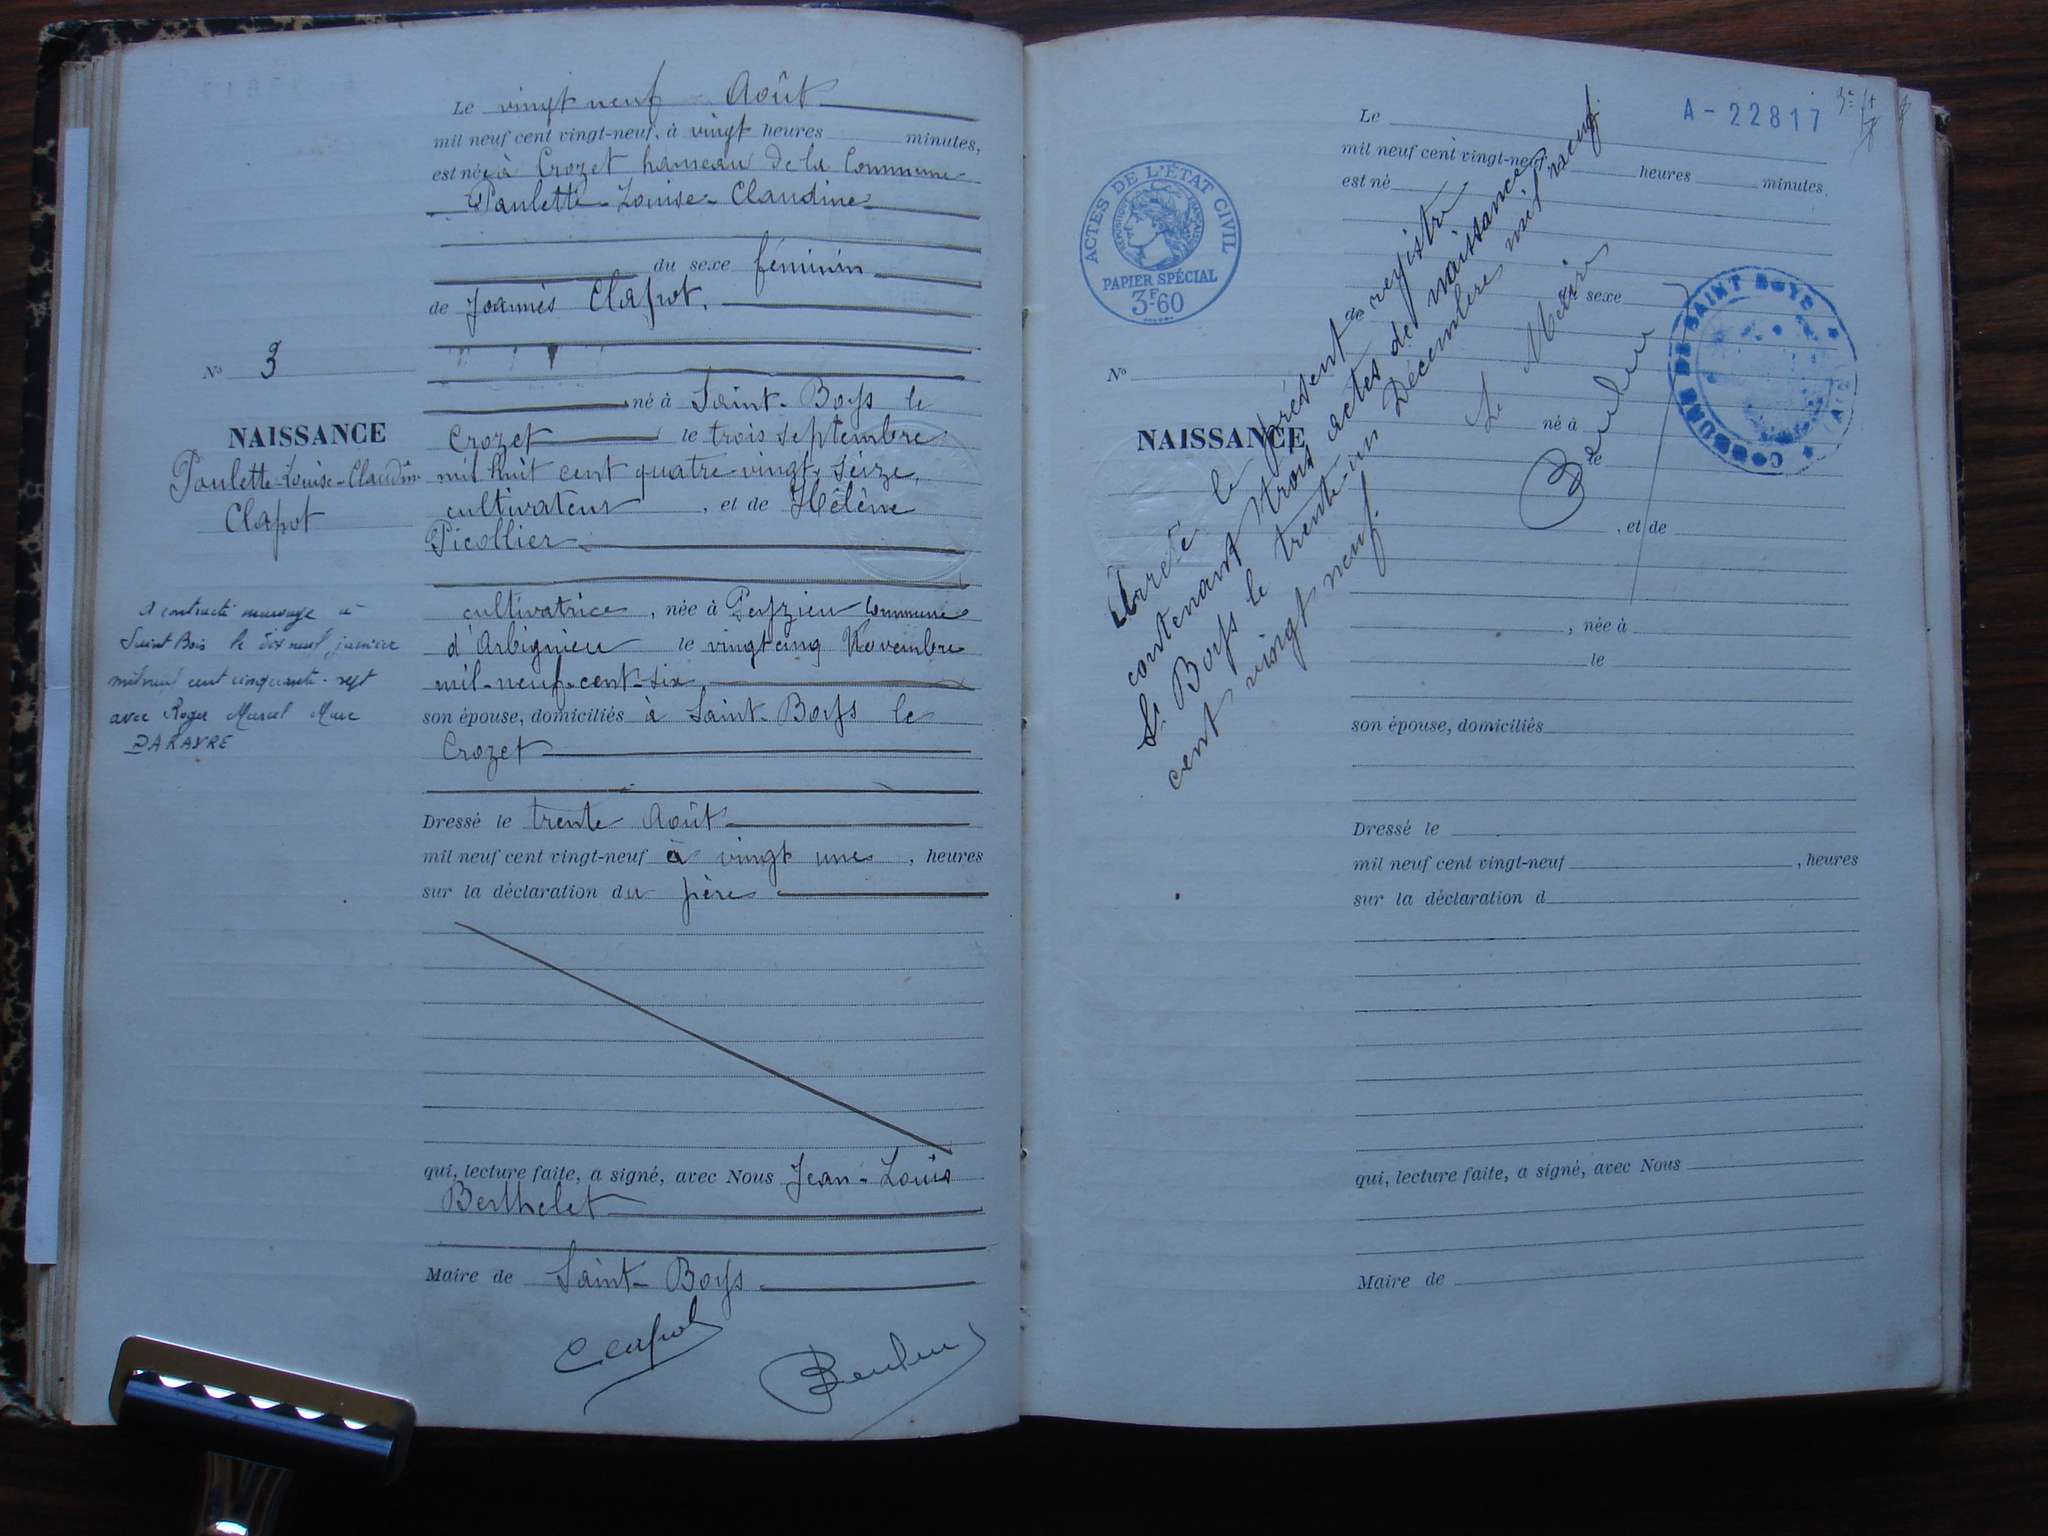 Le vingt neuf Août
mil neuf cent vingt-neuf, à vingt heures minutes,
est née à Crozet hameau de la Commune
Paulette-Louise-Claudine
du sexe féminin
de Joannès Clapot.
No 3
né à Saint-Boys le
NAISSANCE
Crozet le trois septembre
Paulette-Louise-Claudine
mil huit cent quatre-vingt-seize,
Clapot
cultivateur, et de Hélène
Picollier
cultivatrice, née à Peyzieu Commune
d'Arbignieu le vingt cinq Novembre
mil-neuf-cent-six
son épouse, domiciliés à Saint-Boys le
Crozet
A contracté mariage à
Saint Bois le dix neuf janvier
mil neuf cent cinquante-sept
avec Roger Marcel Marc
DARAYRE
Dressé le trente Août
mil neuf cent vingt-neuf à vingt une, heures
sur la déclaration du père
qui, lecture faite, a signé, avec Nous Jean-Louis
Berthelet
Maire de Saint-Boys
Clapot
A-22817
ACTES DE L'ÉTAT CIVIL
PAPIER SPÉCIAL
3F-60
COMMUNE DE SAINT BOYS
(AIN)
Le
mil neuf cent vingt-neuf
heures minutes.
est né
du sexe
de
No
NAISSANCE
né à
le
, et de
, née à
le
son épouse, domiciliés
Dressé le
mil neuf cent vingt-neuf , heures
sur la déclaration d
qui, lecture faite, a signé, avec Nous
Maire de
Arrêté le présent registre
contenant trois actes de naissances
St Boys le trente-un Décembre mil neuf
cent vingt neuf.
Le Maire